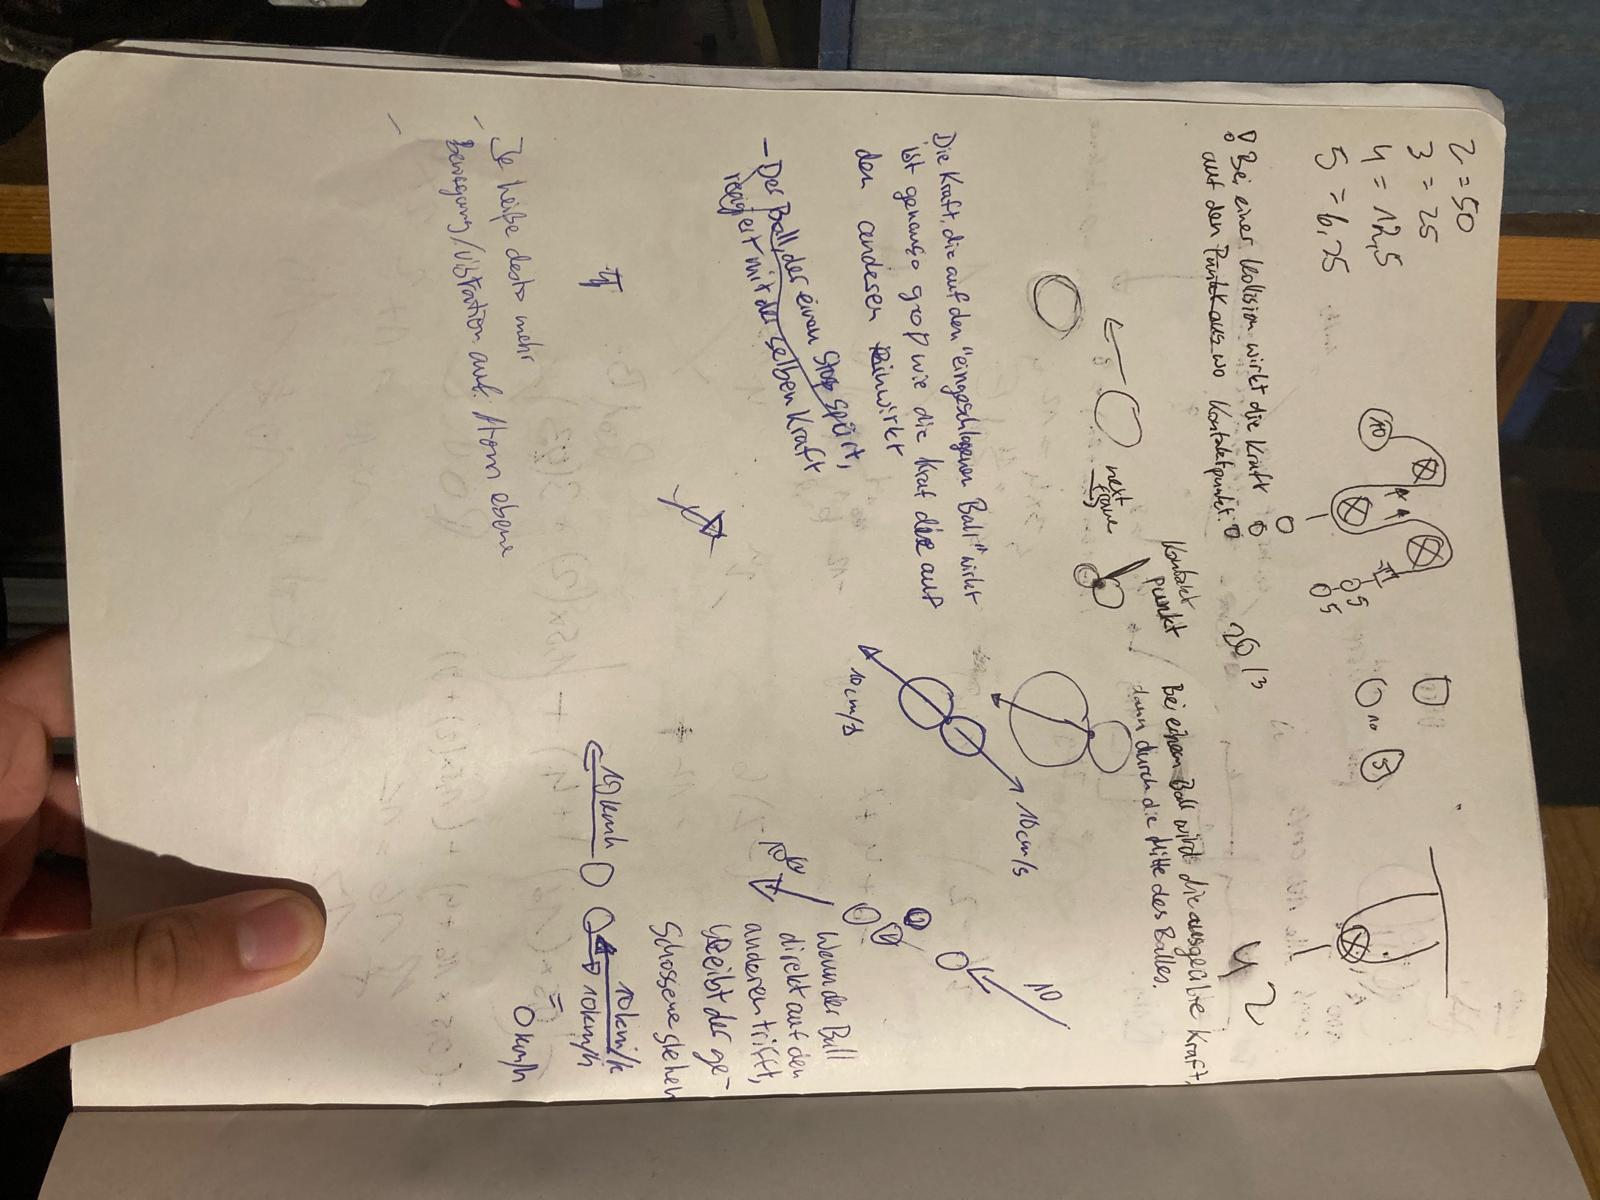 2 = 50
3 = 25
4 = 12,5
5 = 6,25
10
5
5
10
5
Bei einer Kollision wirkt die Kraft
auf den Punkt aus wo Kontaktpunkt.
20 / 3
4 2
next
frame
Kontakt
punkt
Bei einem Ball wird die ausgeübte Kraft,
dann durch die Mitte des Balles.
Die Kraft, die auf den "eingeschlagenen Ball" wirkt
ist genauso groß wie die Kraf die auf
den anderen einwirkt
10 cm/s
10 cm/s
- Der Ball, der einen Stoß spürt,
reagiert mit der selben Kraft
10
10
Wenn der Ball
direkt auf den
anderen trifft,
bleibt der ge-
schossene stehen
- Je heiße desto mehr
Bewegung/Vibration auf Atom ebene
-
10 kmh
10 km/h
10 km/h
=
0 km/h